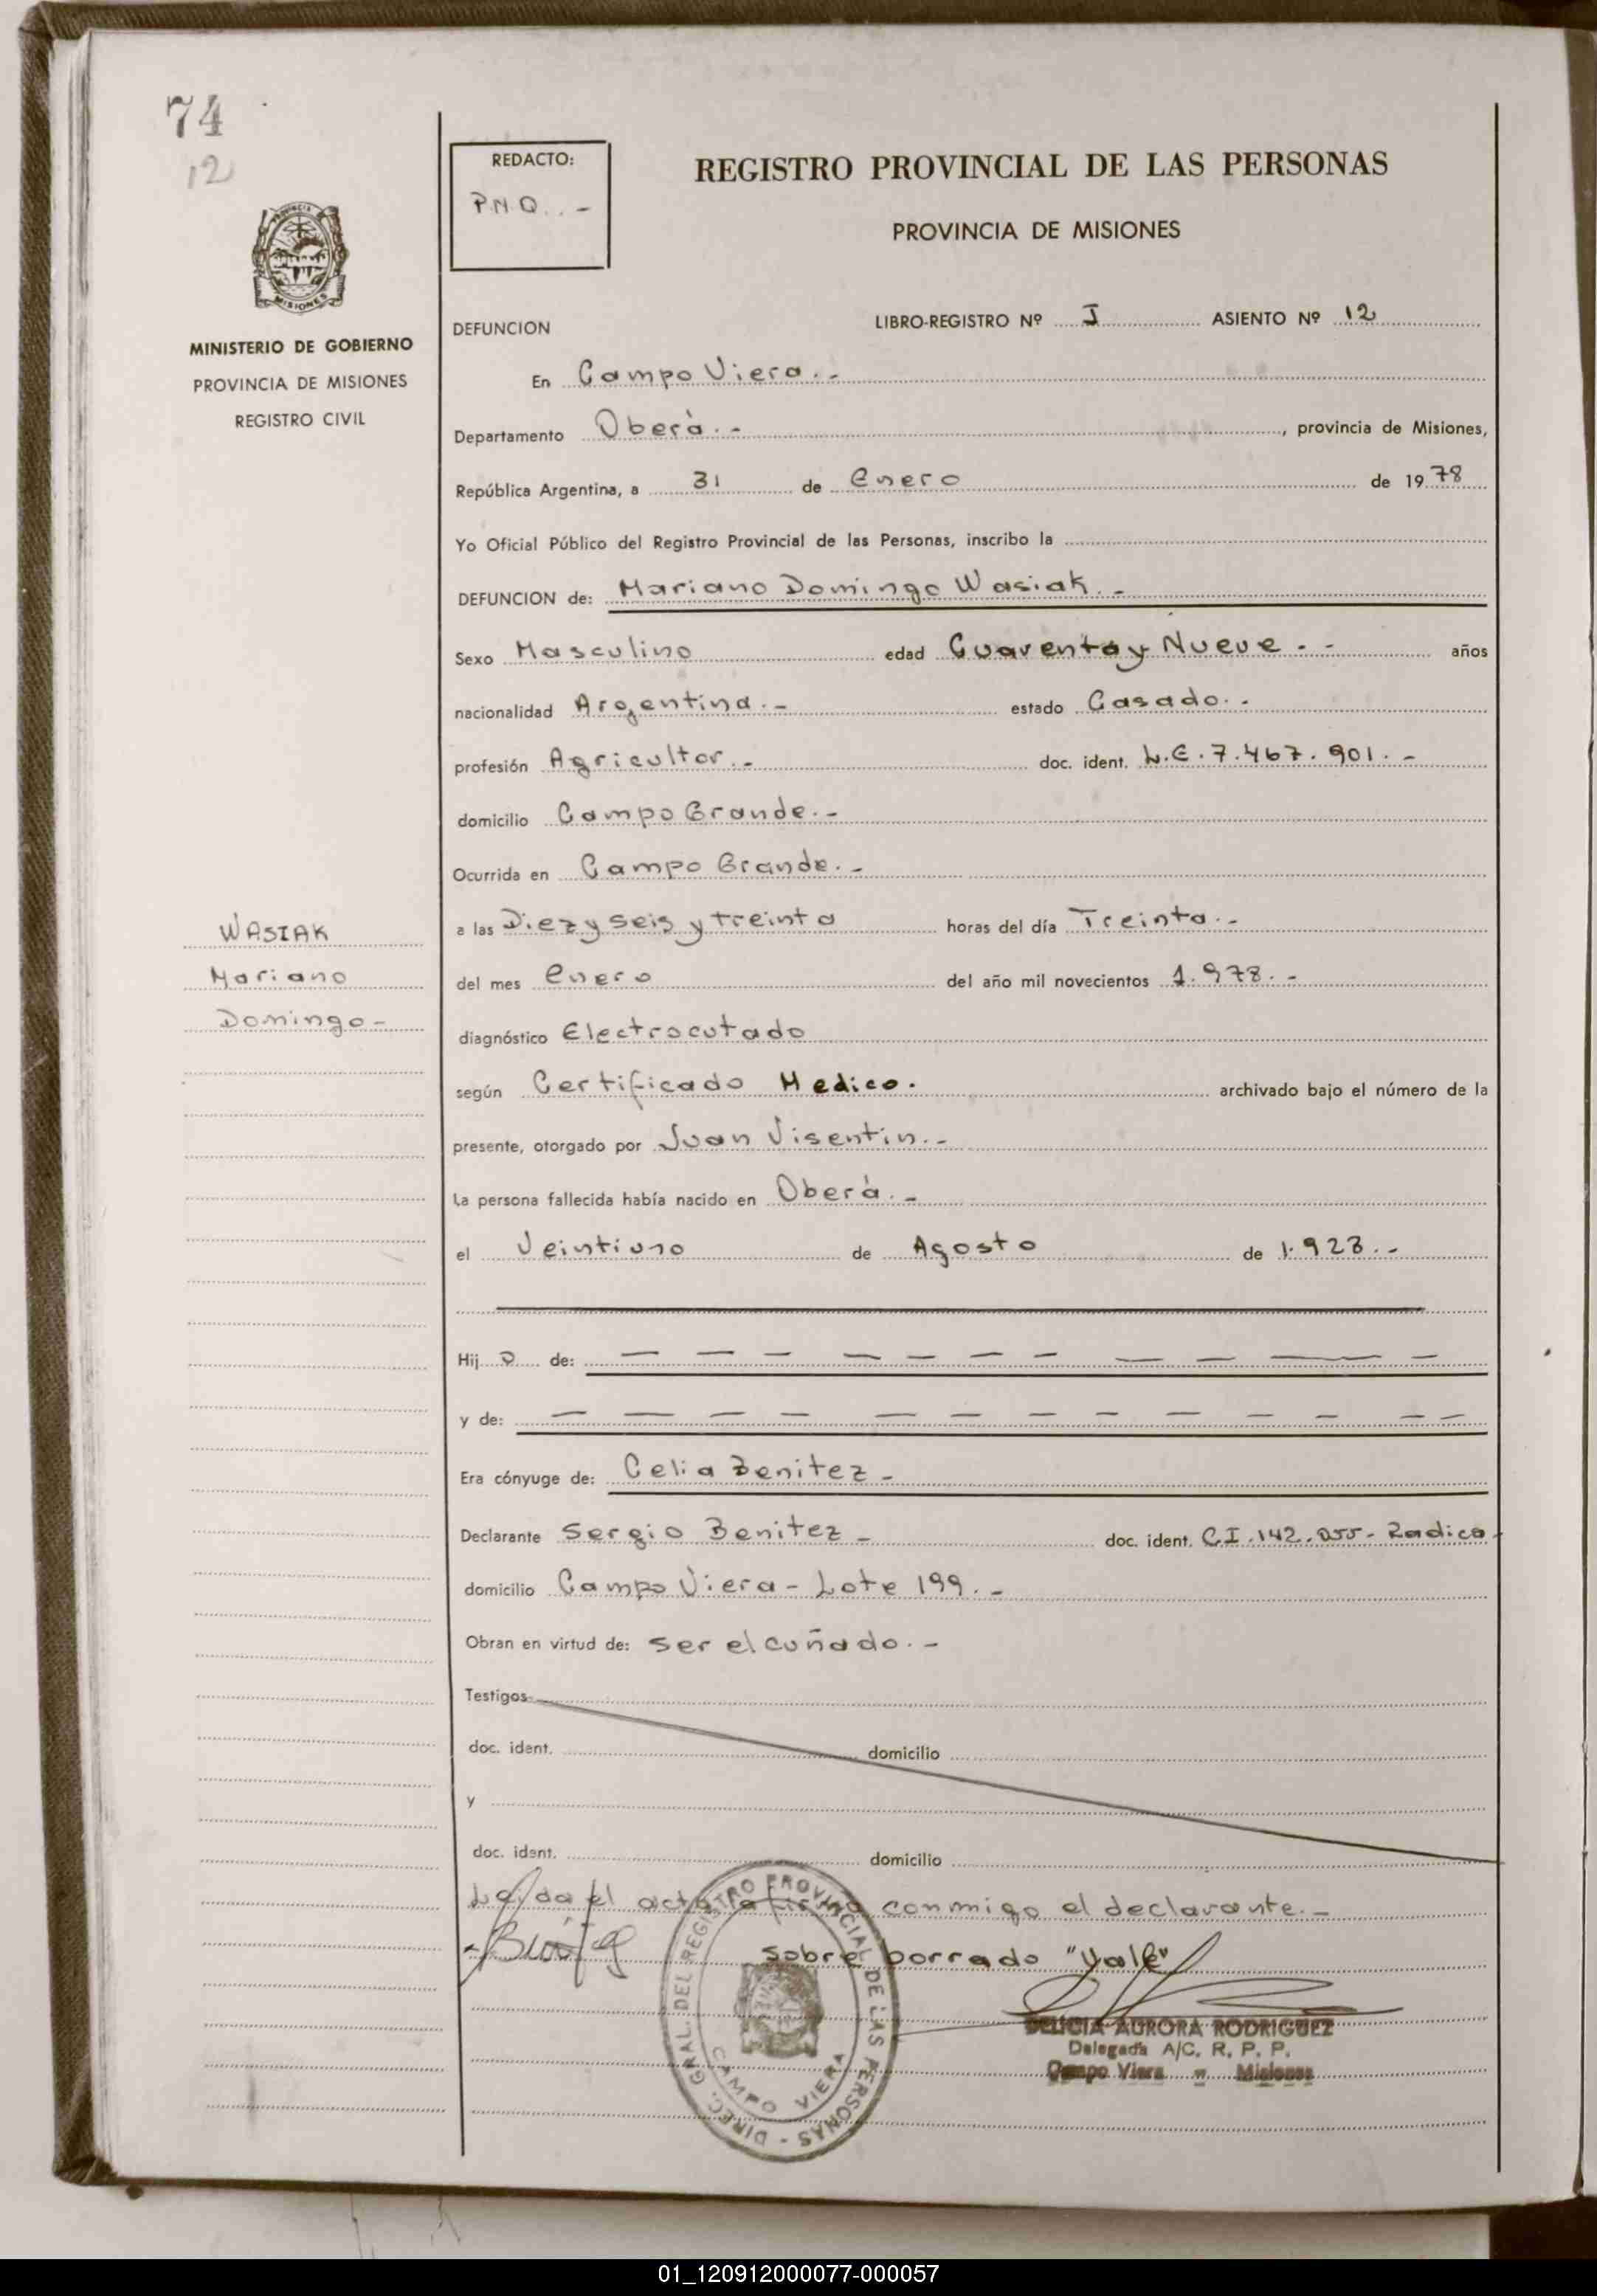 74
12
REDACTO:
P.N.Q..-
REGISTRO PROVINCIAL DE LAS PERSONAS
PROVINCIA DE MISIONES
PROVINCIA
MISIONES
MINISTERIO DE GOBIERNO
PROVINCIA DE MISIONES
REGISTRO CIVIL
DEFUNCION
LIBRO-REGISTRO Nº I ASIENTO Nº 12
En Campo Viera.-
Departamento Oberà.-, provincia de Misiones,
República Argentina, a 31 de Enero de 1978
Yo Oficial Público del Registro Provincial de las Personas, inscribo la
DEFUNCION de: Mariano Domingo Wasiak.-
Sexo Masculino edad Cuarenta y Nueve.- años
nacionalidad Argentina.- estado Casado.-
profesión Agricultor.- doc. ident. L.E.7.467.901.-
domicilio Campo Grande.-
Ocurrida en Campo Grande.-
a las Diez y seis y treinta horas del día Treinta.-
del mes enero del año mil novecientos 1.978.-
diagnóstico Electrocutado
según Certificado Medico. archivado bajo el número de la
presente, otorgado por Juan Visentin.-
La persona fallecida había nacido en Oberà.-
el Veintiuno de Agosto de 1.928.-
Hijo de:
y de:
Era cónyuge de: Celia Benitez-
Declarante Sergio Benitez- doc. ident. C.I.142. Radica-
domicilio Campo Viera-Lote 199.-
Obran en virtud de: ser el cuñado.-
Testigos
doc. ident. domicilio
y
doc. ident. domicilio
Leida el acta la firma conmigo el declarante.-
sobre borrado "Vale"
WASIAK
Mariano
Domingo-
DIREC. GRAL. DEL REGISTRO PROVINCIAL DE LAS PERSONAS -
CAMPO VIERA
DELICIA AURORA RODRIGUEZ
Delegada A/C. R. P. P.
Campo Viera - Misiones
01_120912000077-000057